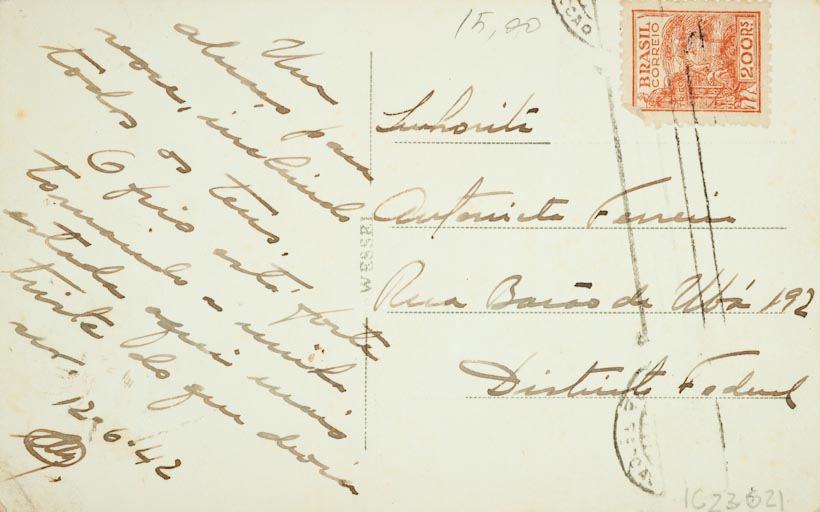 Um
abraço para
você, incluindo
todos os teus.
O frio está forte
tornando a minha
estada aqui mais
triste do que devia
ser.
12-6-42
15,00
BRASIL
CORREIO
200 RS
TRIGO
Senhorita
Antonieta Ferreira
Rua Barão de Ubá 192
Distrito Federal
WESSEL
1623521